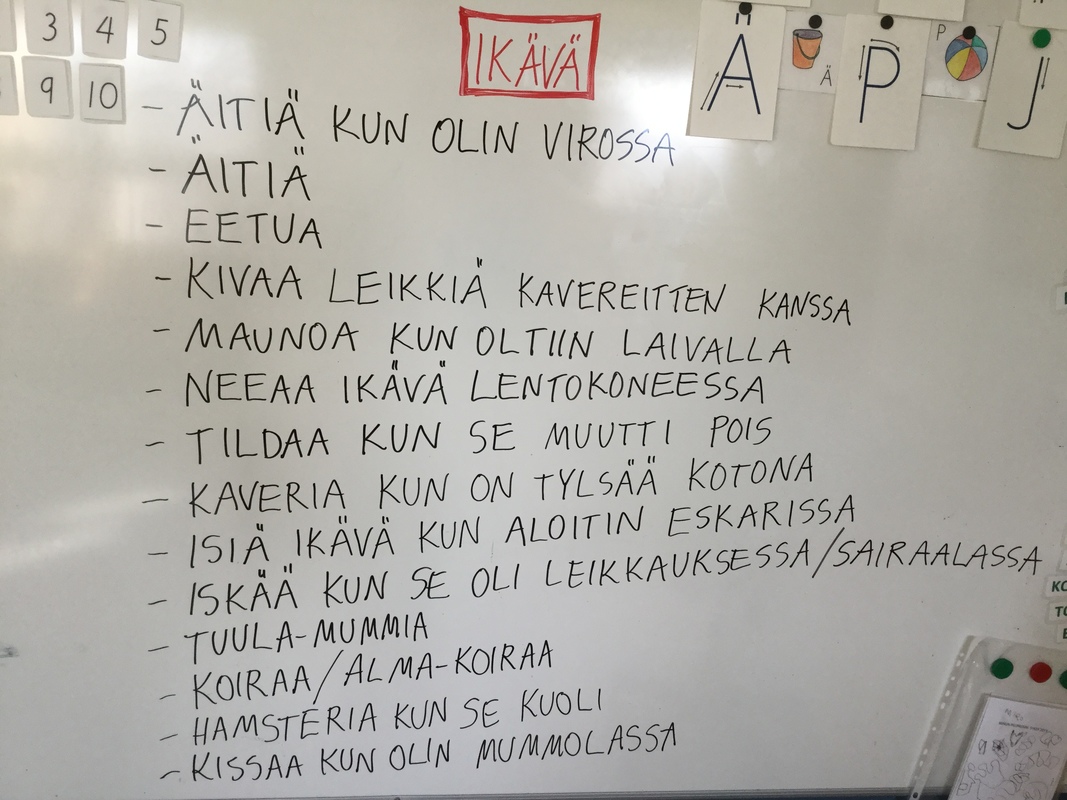 3 4 5
9 10
IKÄVÄ
Ä
Ä
P
P
J
- ÄITIÄ KUN OLIN VIROSSA
- ÄITIÄ
- EETUA
- KIVAA LEIKKIÄ KAVEREITTEN KANSSA
- MAUNOA KUN OLTIIN LAIVALLA
- NEEAA IKÄVÄ LENTOKONEESSA
- TILDAA KUN SE MUUTTI POIS
- KAVERIA KUN ON TYLSÄÄ KOTONA
- ISIÄ IKÄVÄ KUN ALOITIN ESKARISSA
- ISKÄÄ KUN SE OLI LEIKKAUKSESSA/SAIRAALASSA
- TUULA-MUMMIA
- KOIRAA/ALMA-KOIRAA
- HAMSTERIA KUN SE KUOLI
- KISSAA KUN OLIN MUMMOLASSA